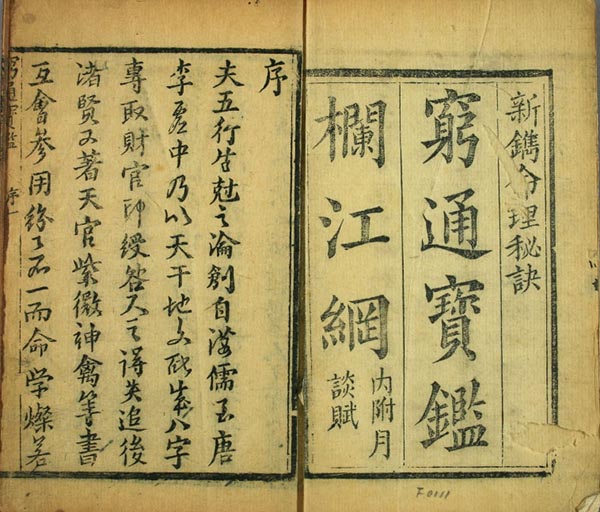 新鐫命理秘訣
窮通寶鑑
欄江網
內附月
談賦
序
夫五行生尅之論創自漢儒至唐
李虛中乃以天干地支配成八字
專取財官印綬咎人之得失追後
諸賢又著天官紫微神禽等書
互會參用紛々不一而命学燦若
序一
F0111